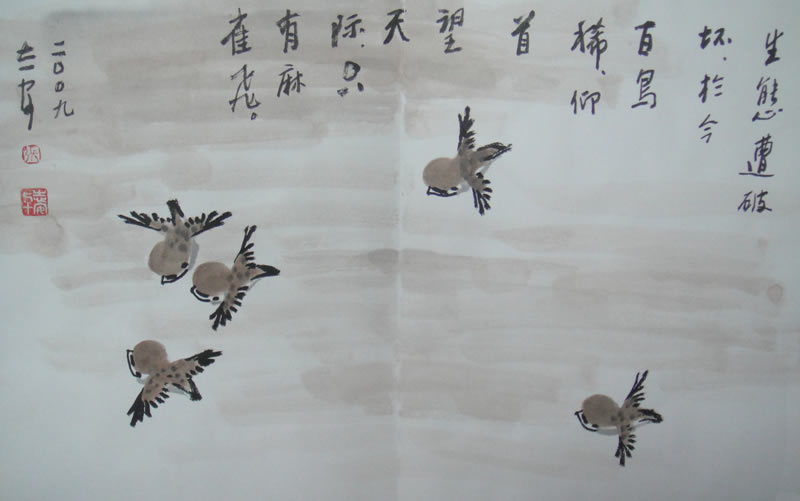 生態遭破
坏、於今
百鳥
稀、仰
首
望
天
际、只
有麻
雀飛。
二〇〇九